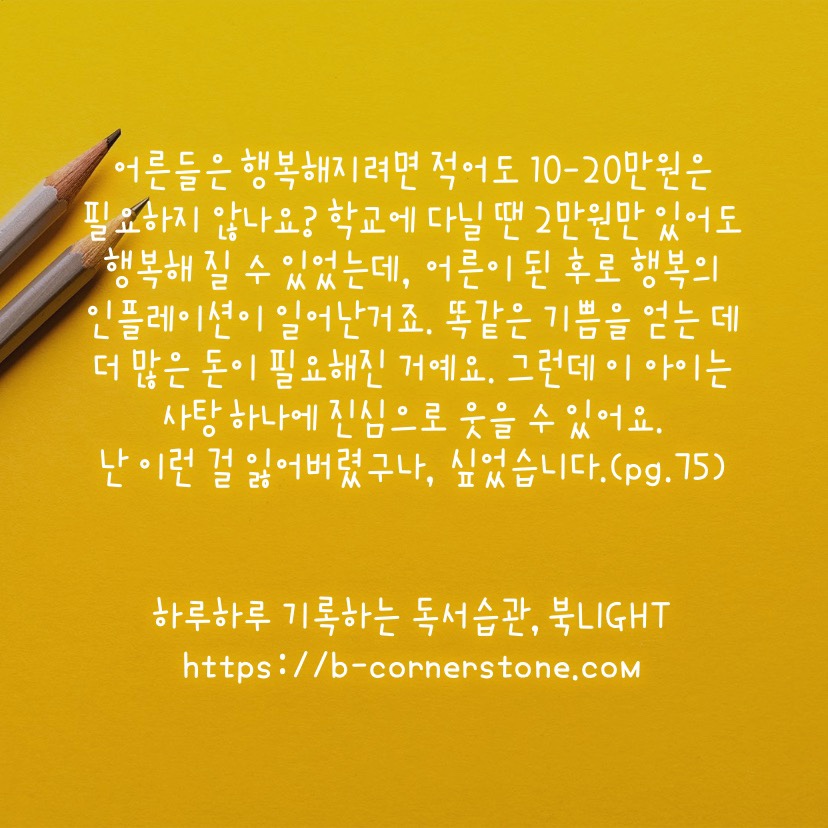 어른들은 행복해지려면 적어도 10-20만원은
필요하지 않나요? 학교에 다닐 땐 2만원만 있어도
행복해 질 수 있었는데, 어른이 된 후로 행복의
인플레이션이 일어난거죠. 똑같은 기쁨을 얻는 데
더 많은 돈이 필요해진 거예요. 그런데 이 아이는
사탕 하나에 진심으로 웃을 수 있어요.
난 이런 걸 잃어버렸구나, 싶었습니다.(pg.75)
하루하루 기록하는 독서습관, 북LIGHT
https://b-cornerstone.com